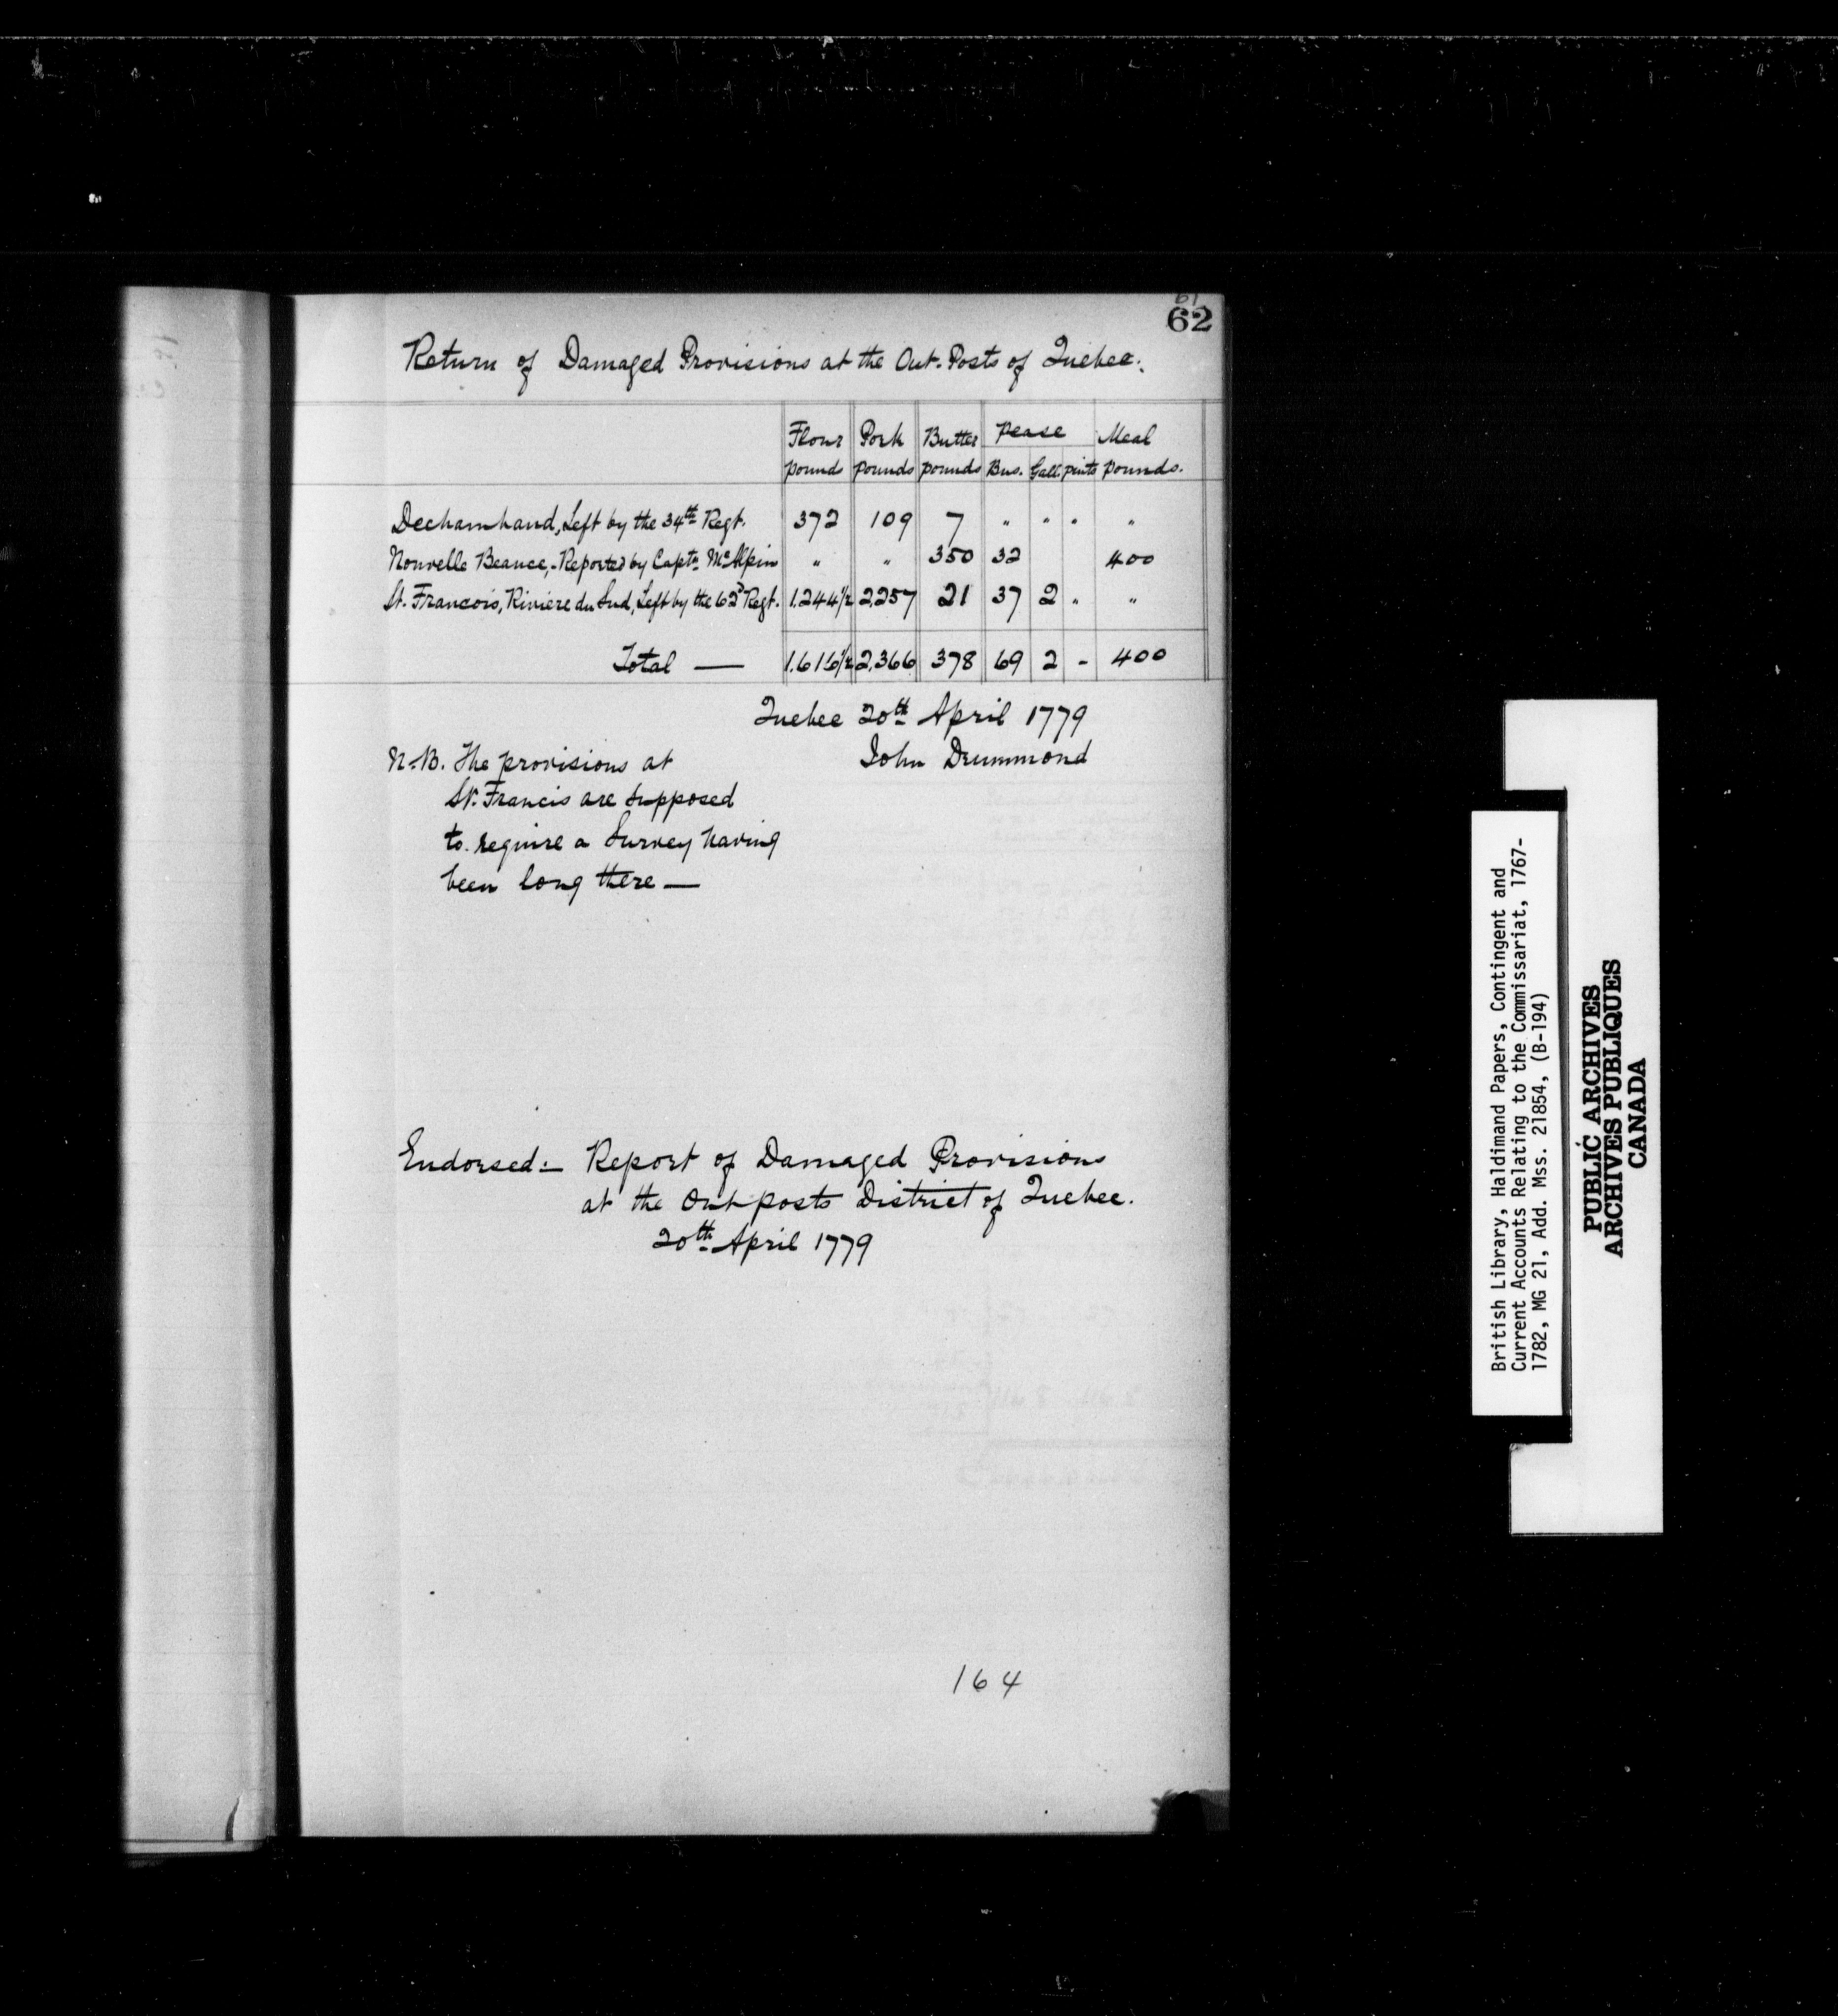 61
62
Return of Damaged Provisions at the Out-Posts of Quebec:.
Flour Pork Butter Pease Meal
pounds pounds pounds Bus. Gall. pints pounds.
Dechamhand, Left by the 34th Regt. 372 109 7 " " " "
Nouvelle Beauce, - Reported by Captn. McAlpin " " 350 32 400
St. Francois, Riviere du Sud, Left by the 62d Regt. 1.244½ 2,257 21 37 2 " "
Total — 1.616½ 2,366 378 69 2 - 400
Quebec 20th April 1779
John Drummond
N.B. The provisions at
St. Francis are supposed
to require a Survey having
been long there —
Endorsed:- Report of Damaged Provisions
at the Outposts District of Quebec.
20th April 1779
164
British Library, Haldimand Papers, Contingent and
Current Accounts Relating to the Commissariat, 1767-
1782, MG 21, Add. Mss. 21854, (B-194)
PUBLIC ARCHIVES
ARCHIVES PUBLIQUES
CANADA